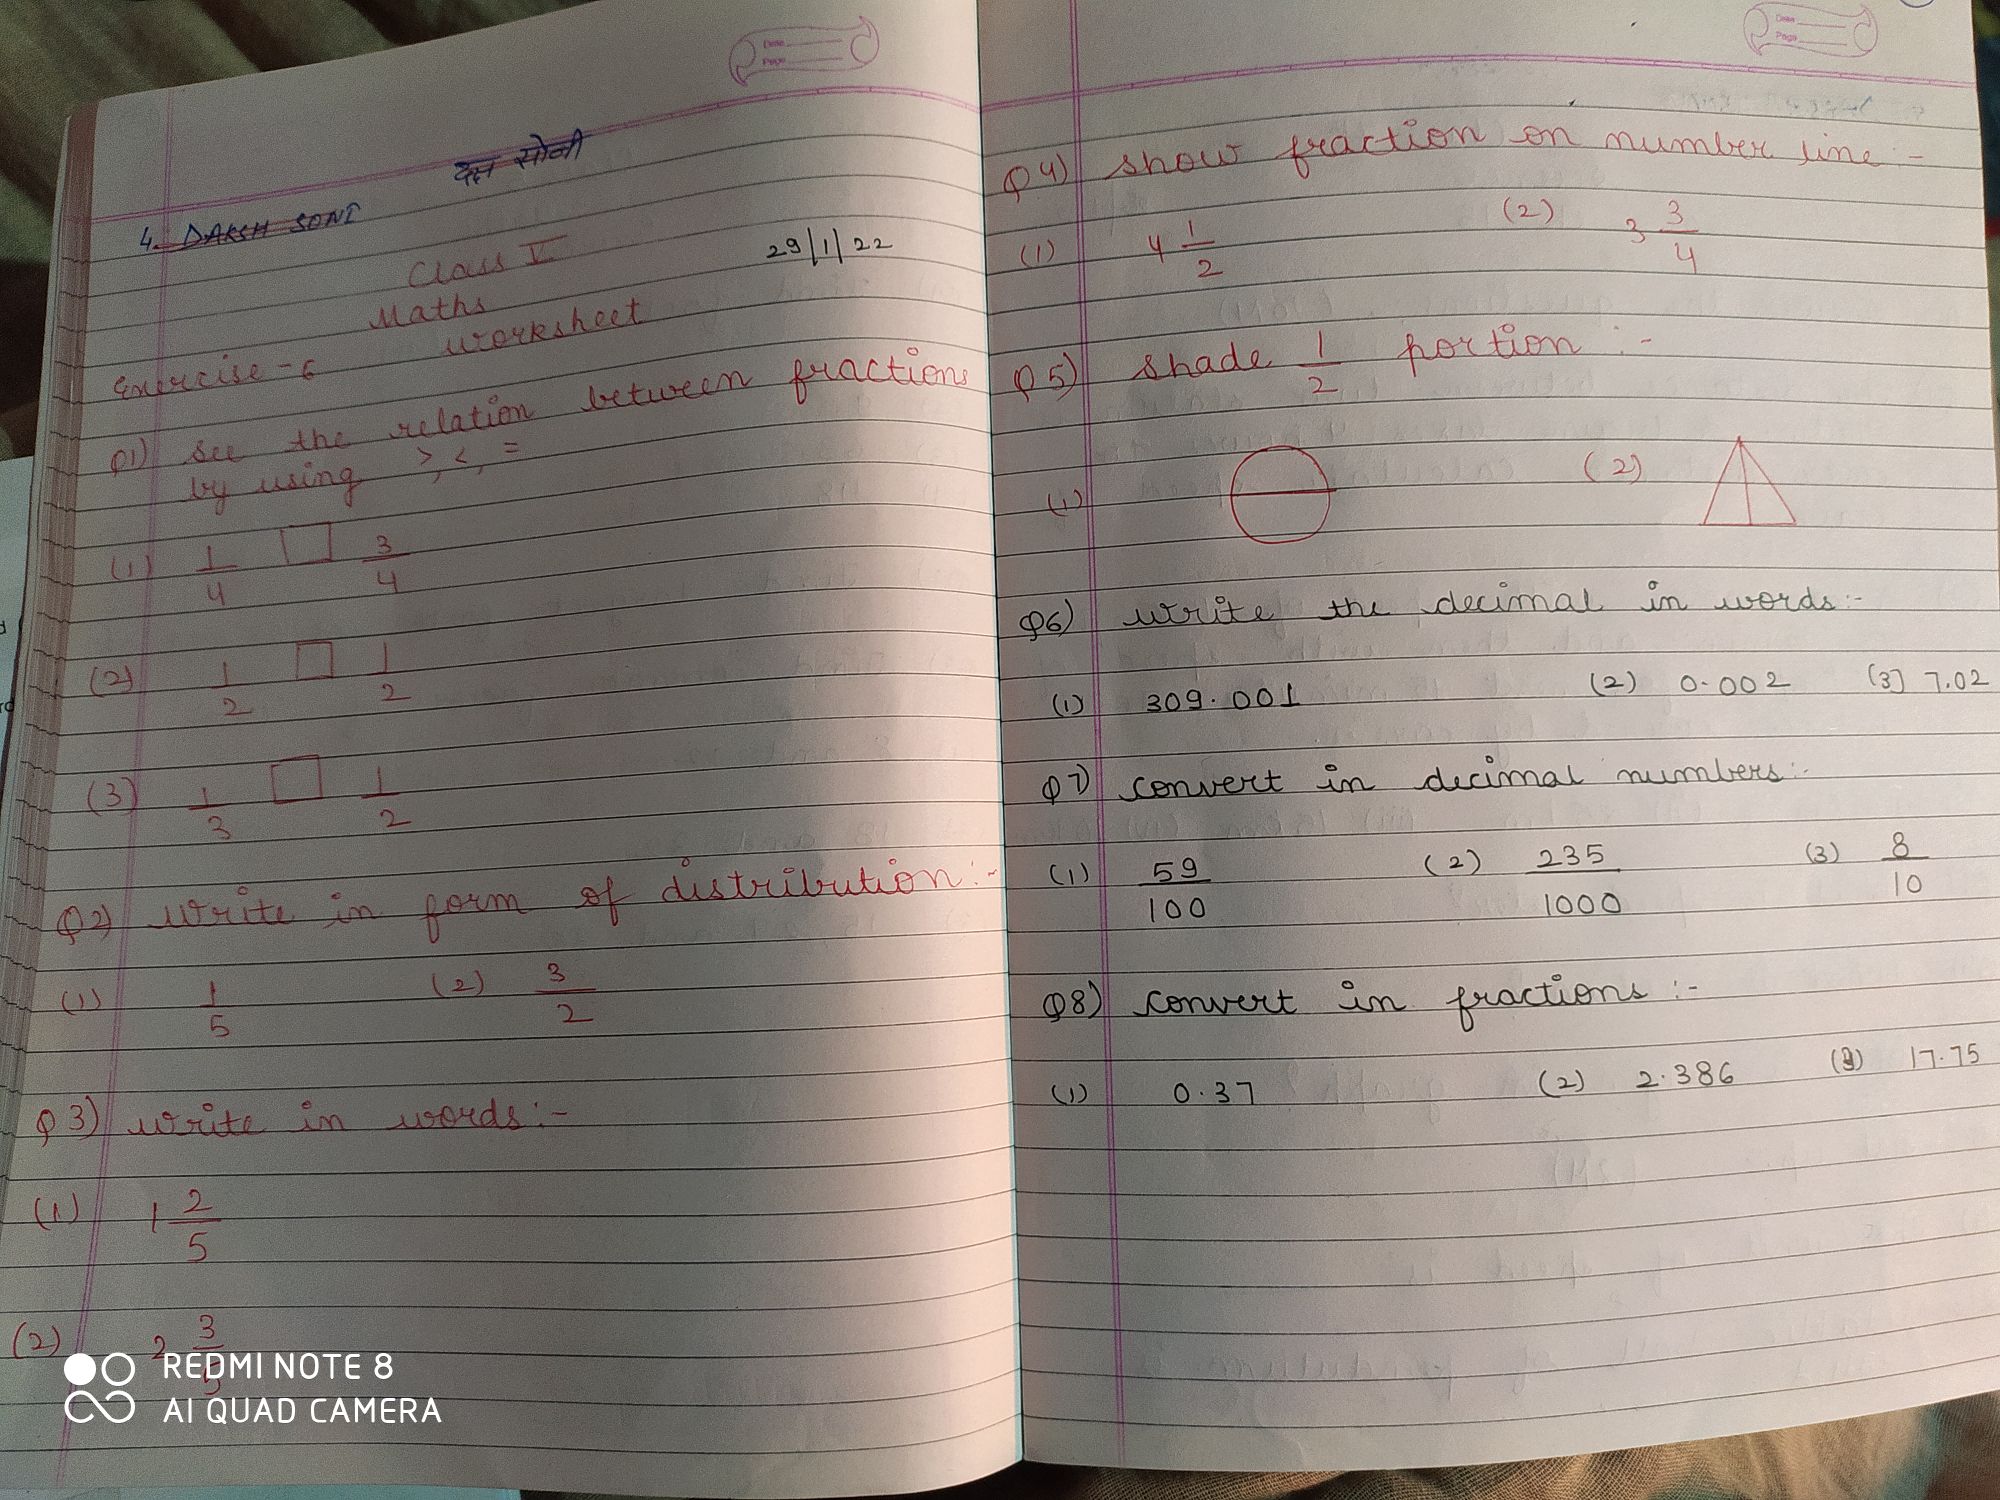 दक्ष सोनी
4. DAKSH SONI
Class V
29/1/22
Maths
Worksheet
Exercise - 6
Q1) See the relation between fractions
by using >, <, =
(1) 1/4 □ 3/4
(2) 1/2 □ 1/2
(3) 1/3 □ 1/2
Q2) Write in form of distribution :-
(1) 1/5 (2) 3/2
Q3) Write in words :-
(1) 1 2/5
(2) 2 3/5
REDMI NOTE 8
AI QUAD CAMERA
Date
Page
Date
Page
Q4) Show fraction on number line :-
(1) 4 1/2 (2) 3 3/4
Q5) Shade 1/2 portion :-
(1) (2)
Q6) Write the decimal in words :-
(1) 309.001 (2) 0.002 (3) 7.02
Q7) Convert in decimal numbers :-
(1) 59/100 (2) 235/1000 (3) 8/10
Q8) Convert in fractions :-
(1) 0.37 (2) 2.386 (3) 17.75